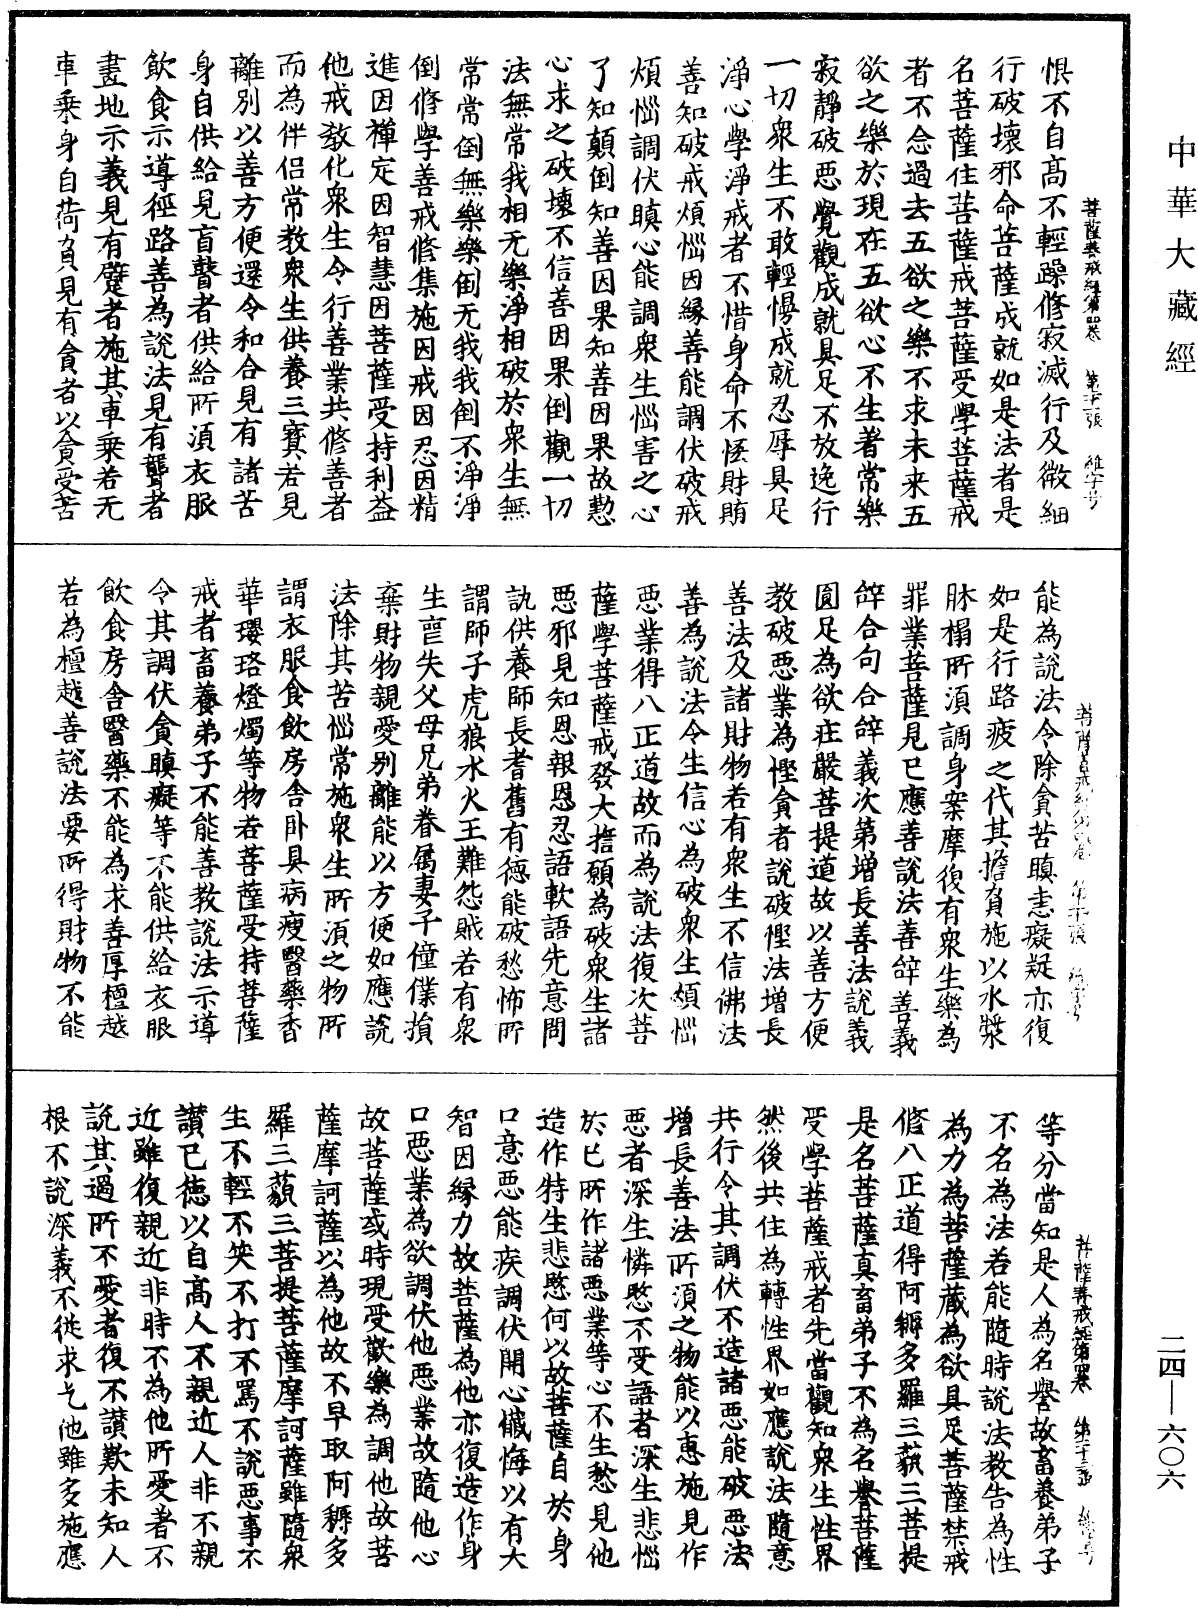 中華大藏經
菩薩善戒經第四卷 第十一張 維字号
惧不自高不輕躁修寂滅行及微細
行破壞邪命菩薩成就如是法者是
名菩薩住菩薩戒菩薩受學菩薩戒
者不念過去五欲之樂不求未来五
欲之樂於現在五欲心不生著常樂
寂靜破惡覺觀成就具足不放逸行
一切衆生不敢輕慢成就忍辱具足
淨心學淨戒者不惜身命不悋財賄
善知破戒煩惱因縁善能調伏破戒
煩惱調伏瞋心能調衆生惱害之心
了知顛倒知善因果知善因果故懃
心求之破壞不信善因果倒觀一切
法無常我相无樂淨相破於衆生無
常常倒無樂樂倒无我我倒不淨淨
倒修學善戒修集施因戒因忍因精
進因禅定因智慧因菩薩受持利益
他戒教化衆生令行善業共修善者
而為伴侣常教衆生供養三寳若見
離別以善方便還令和合見有諸苦
身自供給見盲瞽者供給所須衣服
飲食示導徑路善為說法見有聾者
畫地示義見有躄者施其車乘若无
車乘身自荷負見有貪者以貪受苦
能為說法令除貪苦瞋恚癡疑亦復
如是行路疲乏代其擔負施以水漿
牀榻所須調身案摩復有衆生樂為
罪業菩薩見已應善說法善辝善義
辝合句合辝義次第增長善法說義
圓足為欲莊嚴菩提道故以善方便
教破惡業為慳貪者說破慳法增長
善法及諸財物若有衆生不信佛法
善為說法令生信心為破衆生煩惱
惡業得八正道故而為說法復次菩
薩學菩薩戒發大擔願為破衆生諸
惡邪見知恩報恩忍語軟語先意問
訊供養師長耆舊有德能破愁怖所
謂師子虎狼水火王難怨賊若有衆
生䘮失父母兄弟眷屬妻子僮僕損
棄財物親愛別離能以方便如應說
法除其苦惱常施衆生所須之物所
謂衣服食飲房舍卧具病瘦醫藥香
華瓔珞燈燭等物若菩薩受持菩薩
戒者畜養弟子不能善教說法示導
令其調伏貪瞋癡等不能供給衣服
飲食房舍醫藥不能為求善厚檀越
若為檀越善說法要所得財物不能
菩薩善戒經第四卷 第十三張 維字号
等分當知是人為名譽故畜養弟子
不名為法若能隨時說法教告為性
為力為菩薩藏為欲具足菩薩禁戒
修八正道得阿耨多羅三藐三菩提
是名菩薩真畜弟子不為名譽菩薩
受學菩薩戒者先當觀知衆生性界
然後共住為轉性界如應說法隨意
共行令其調伏不造諸惡能破惡法
增長善法所須之物能以惠施見作
惡者深生憐愍不受語者深生悲惱
於已所作諸惡業等心不生愁見他
造作特生悲愍何以故菩薩自於身
口意惡能疾調伏開心懺悔以有大
智因縁力故菩薩為他亦復造作身
口惡業為欲調伏他惡業故隨他心
故菩薩或時現受歡樂為調他故菩
薩摩訶薩以為他故不早取阿耨多
羅三藐三菩提菩薩摩訶薩雖隨衆
生不輕不笑不打不罵不說惡事不
讃已德以自高人不親近人非不親
近雖復親近非時不為他所愛者不
說其過所不愛者復不讃歎未知人
根不說深義不從求乞他雖多施應
二四—六〇六